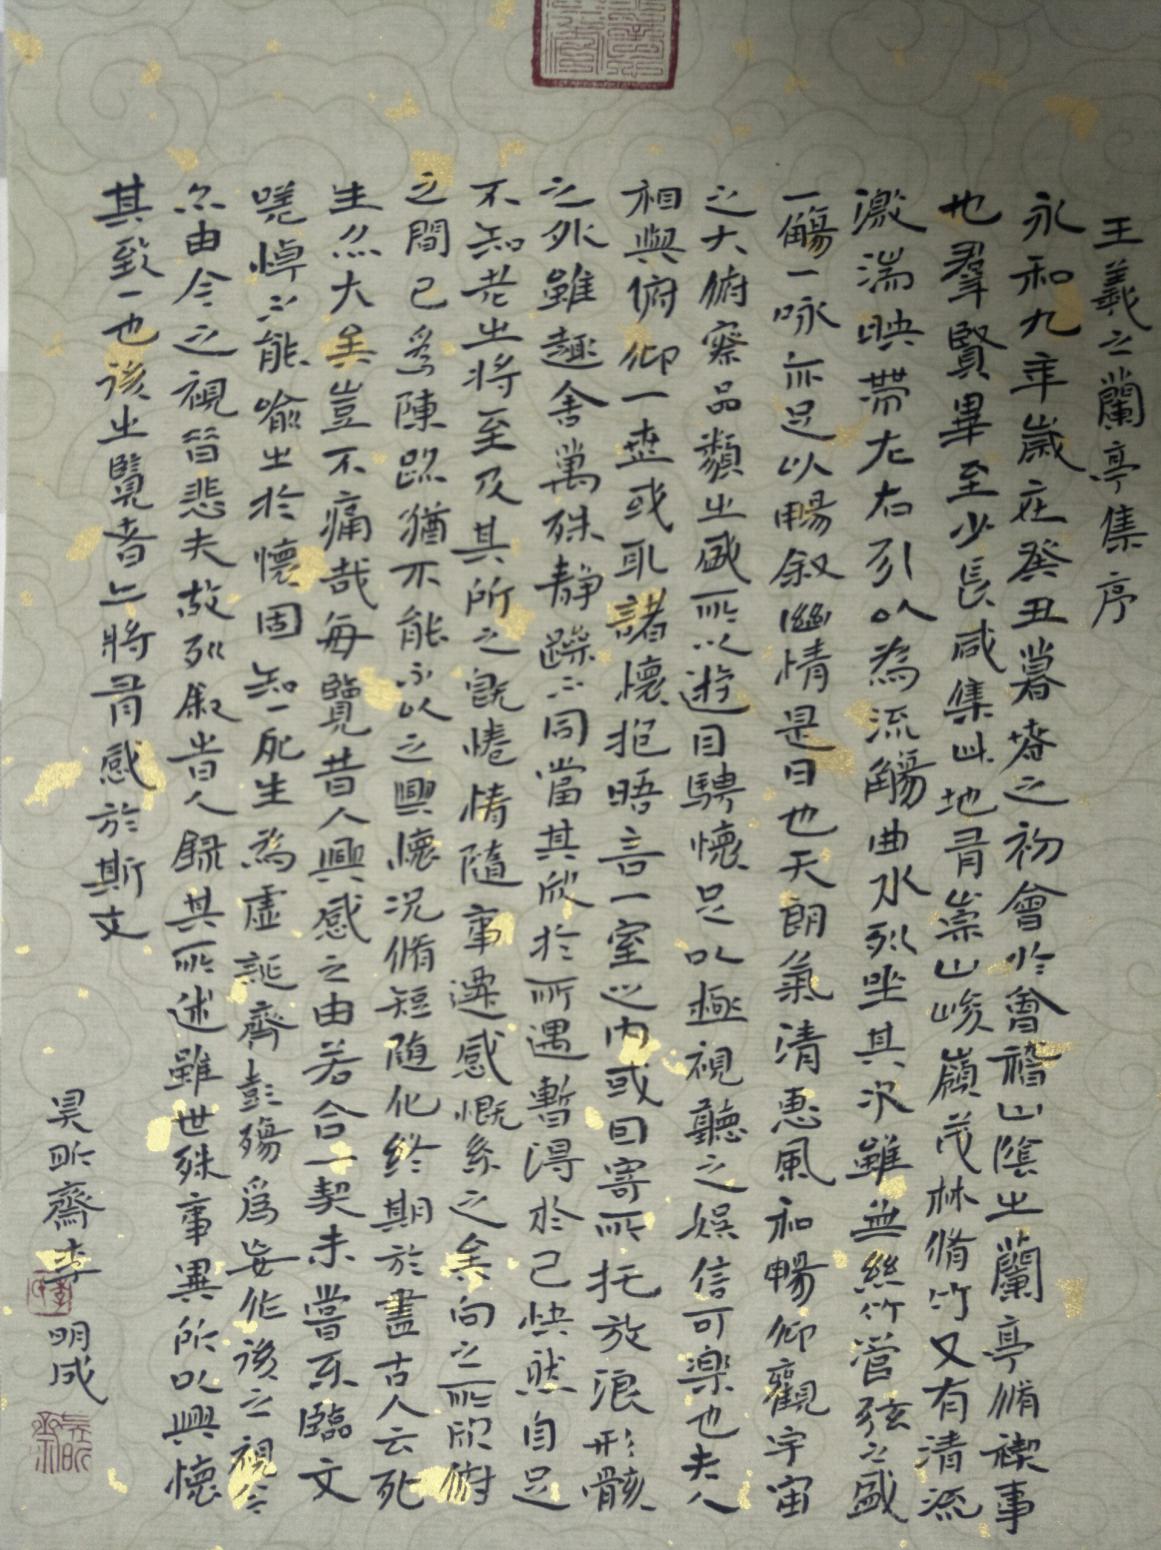 王羲之蘭亭集序
永和九年歲在癸丑暮春之初會於會稽山陰之蘭亭脩禊事
也羣賢畢至少長咸集此地有崇山峻嶺茂林脩竹又有清流
激湍映帶左右引以為流觴曲水列坐其次雖無絲竹管弦之盛
一觴一咏亦足以暢叙幽情是日也天朗氣清惠風和暢仰觀宇宙
之大俯察品類之盛所以遊目騁懷足以極視聽之娛信可樂也夫人
相與俯仰一世或取諸懷抱晤言一室之内或因寄所托放浪形骸
之外雖趣舍萬殊静躁不同當其欣於所遇暫得於己快然自足
不知老之將至及其所之既惓情隨事遷感慨系之矣向之所欣俯
之間已為陳迹猶不能不以之興懷况脩短隨化終期於盡古人云死
生亦大矣豈不痛哉每覽昔人興感之由若合一契未嘗不臨文
嗟悼不能喻之於懷固知一死生為虛誕齊彭殤為妄作後之視今
亦由今之視昔悲夫故列叙昔人録其所述雖世殊事異所以興懷
其致一也後之覽者亦將有感於斯文
昊昕齋李明成